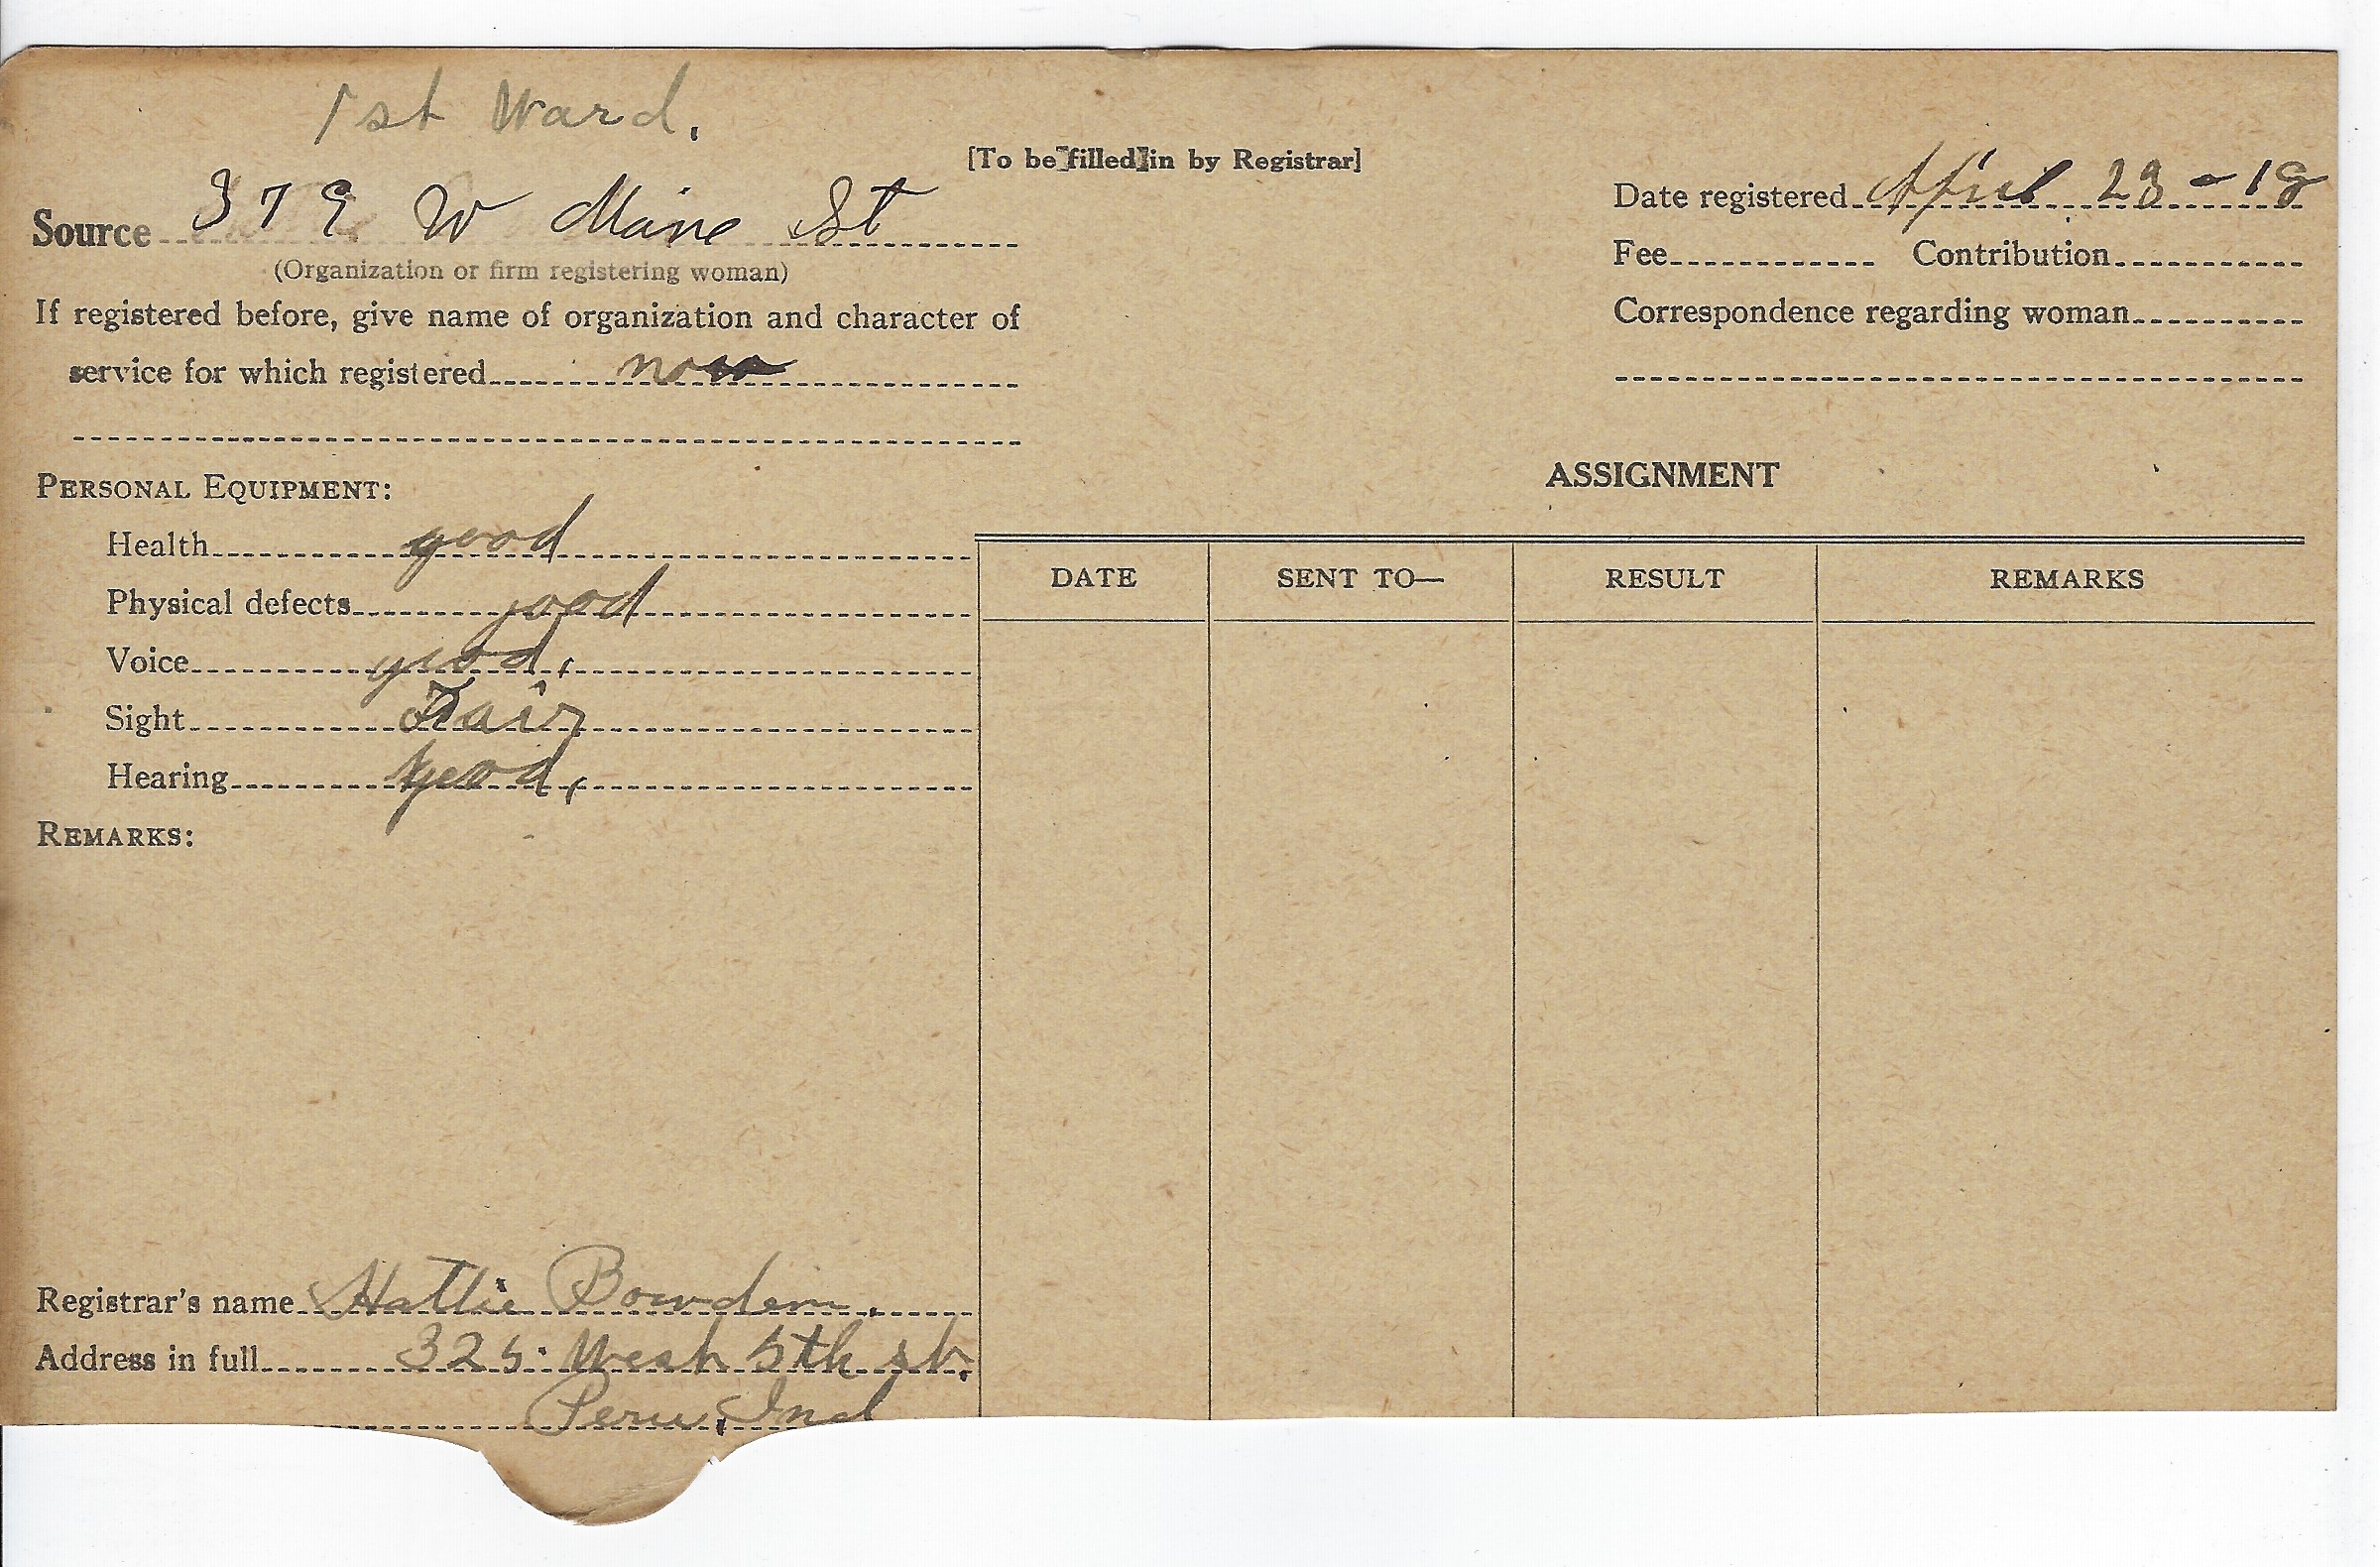 1st Ward.
[To be filled in by Registrar]
Source 379 W Maine St
(Organization or firm registering woman)
If registered before, give name of organization and character of
service for which registered no
Date registered April 23 - 18
Fee Contribution
Correspondence regarding woman
PERSONAL EQUIPMENT:
Health good
Physical defects good
Voice good,
Sight Fair
Hearing good,
REMARKS:
ASSIGNMENT
DATE SENT TO— RESULT REMARKS
Registrar's name Hattie Bowden.
Address in full 325 West 5th st.
Peru, Ind